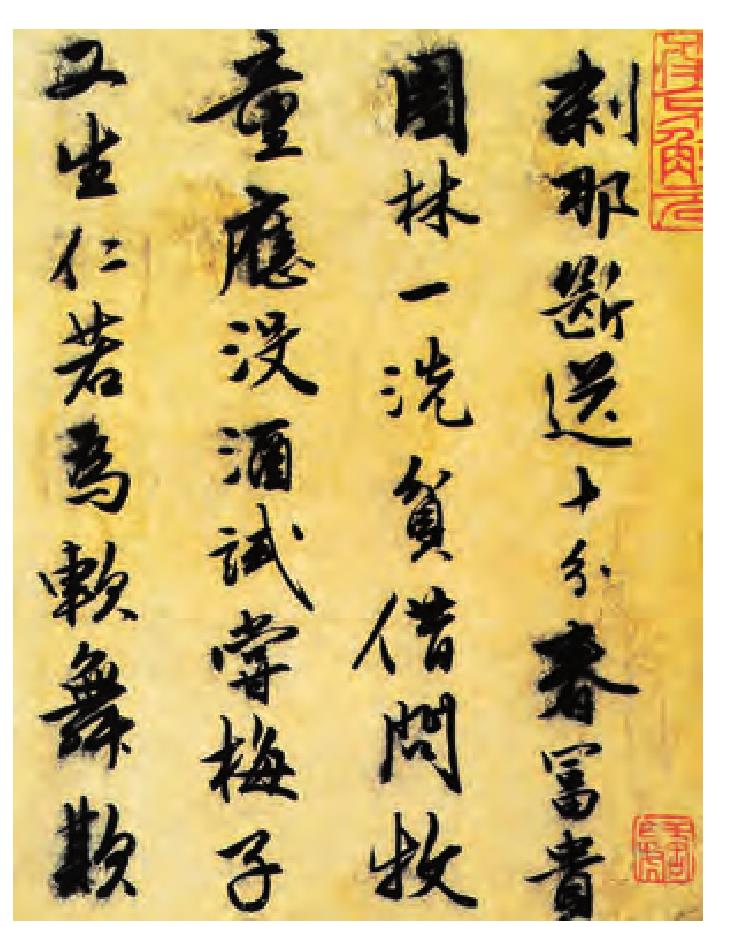 刹那斷送十分春富貴
園林一洗貧借問牧
童應沒酒試嘗梅子
又生仁若為軟舞欺